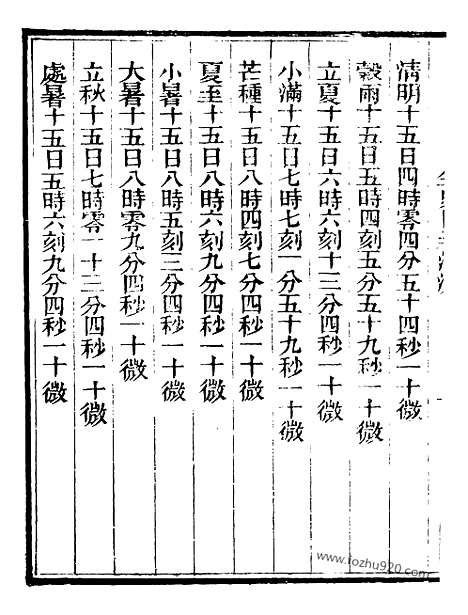 清明十五日四時零四分五十四秒一十微
穀雨十五日五時四刻五分五十九秒一十微
立夏十五日六時六刻十三分四秒一十微
小滿十五日七時七刻一分五十九秒一十微
芒種十五日八時四刻七分四秒一十微
夏至十五日八時六刻九分四秒一十微
小暑十五日八時五刻三分四秒一十微
大暑十五日八時零九分四秒一十微
立秋十五日七時零一十三分四秒一十微
處暑十五日五時六刻九分四秒一十微
www.fozhu920.com